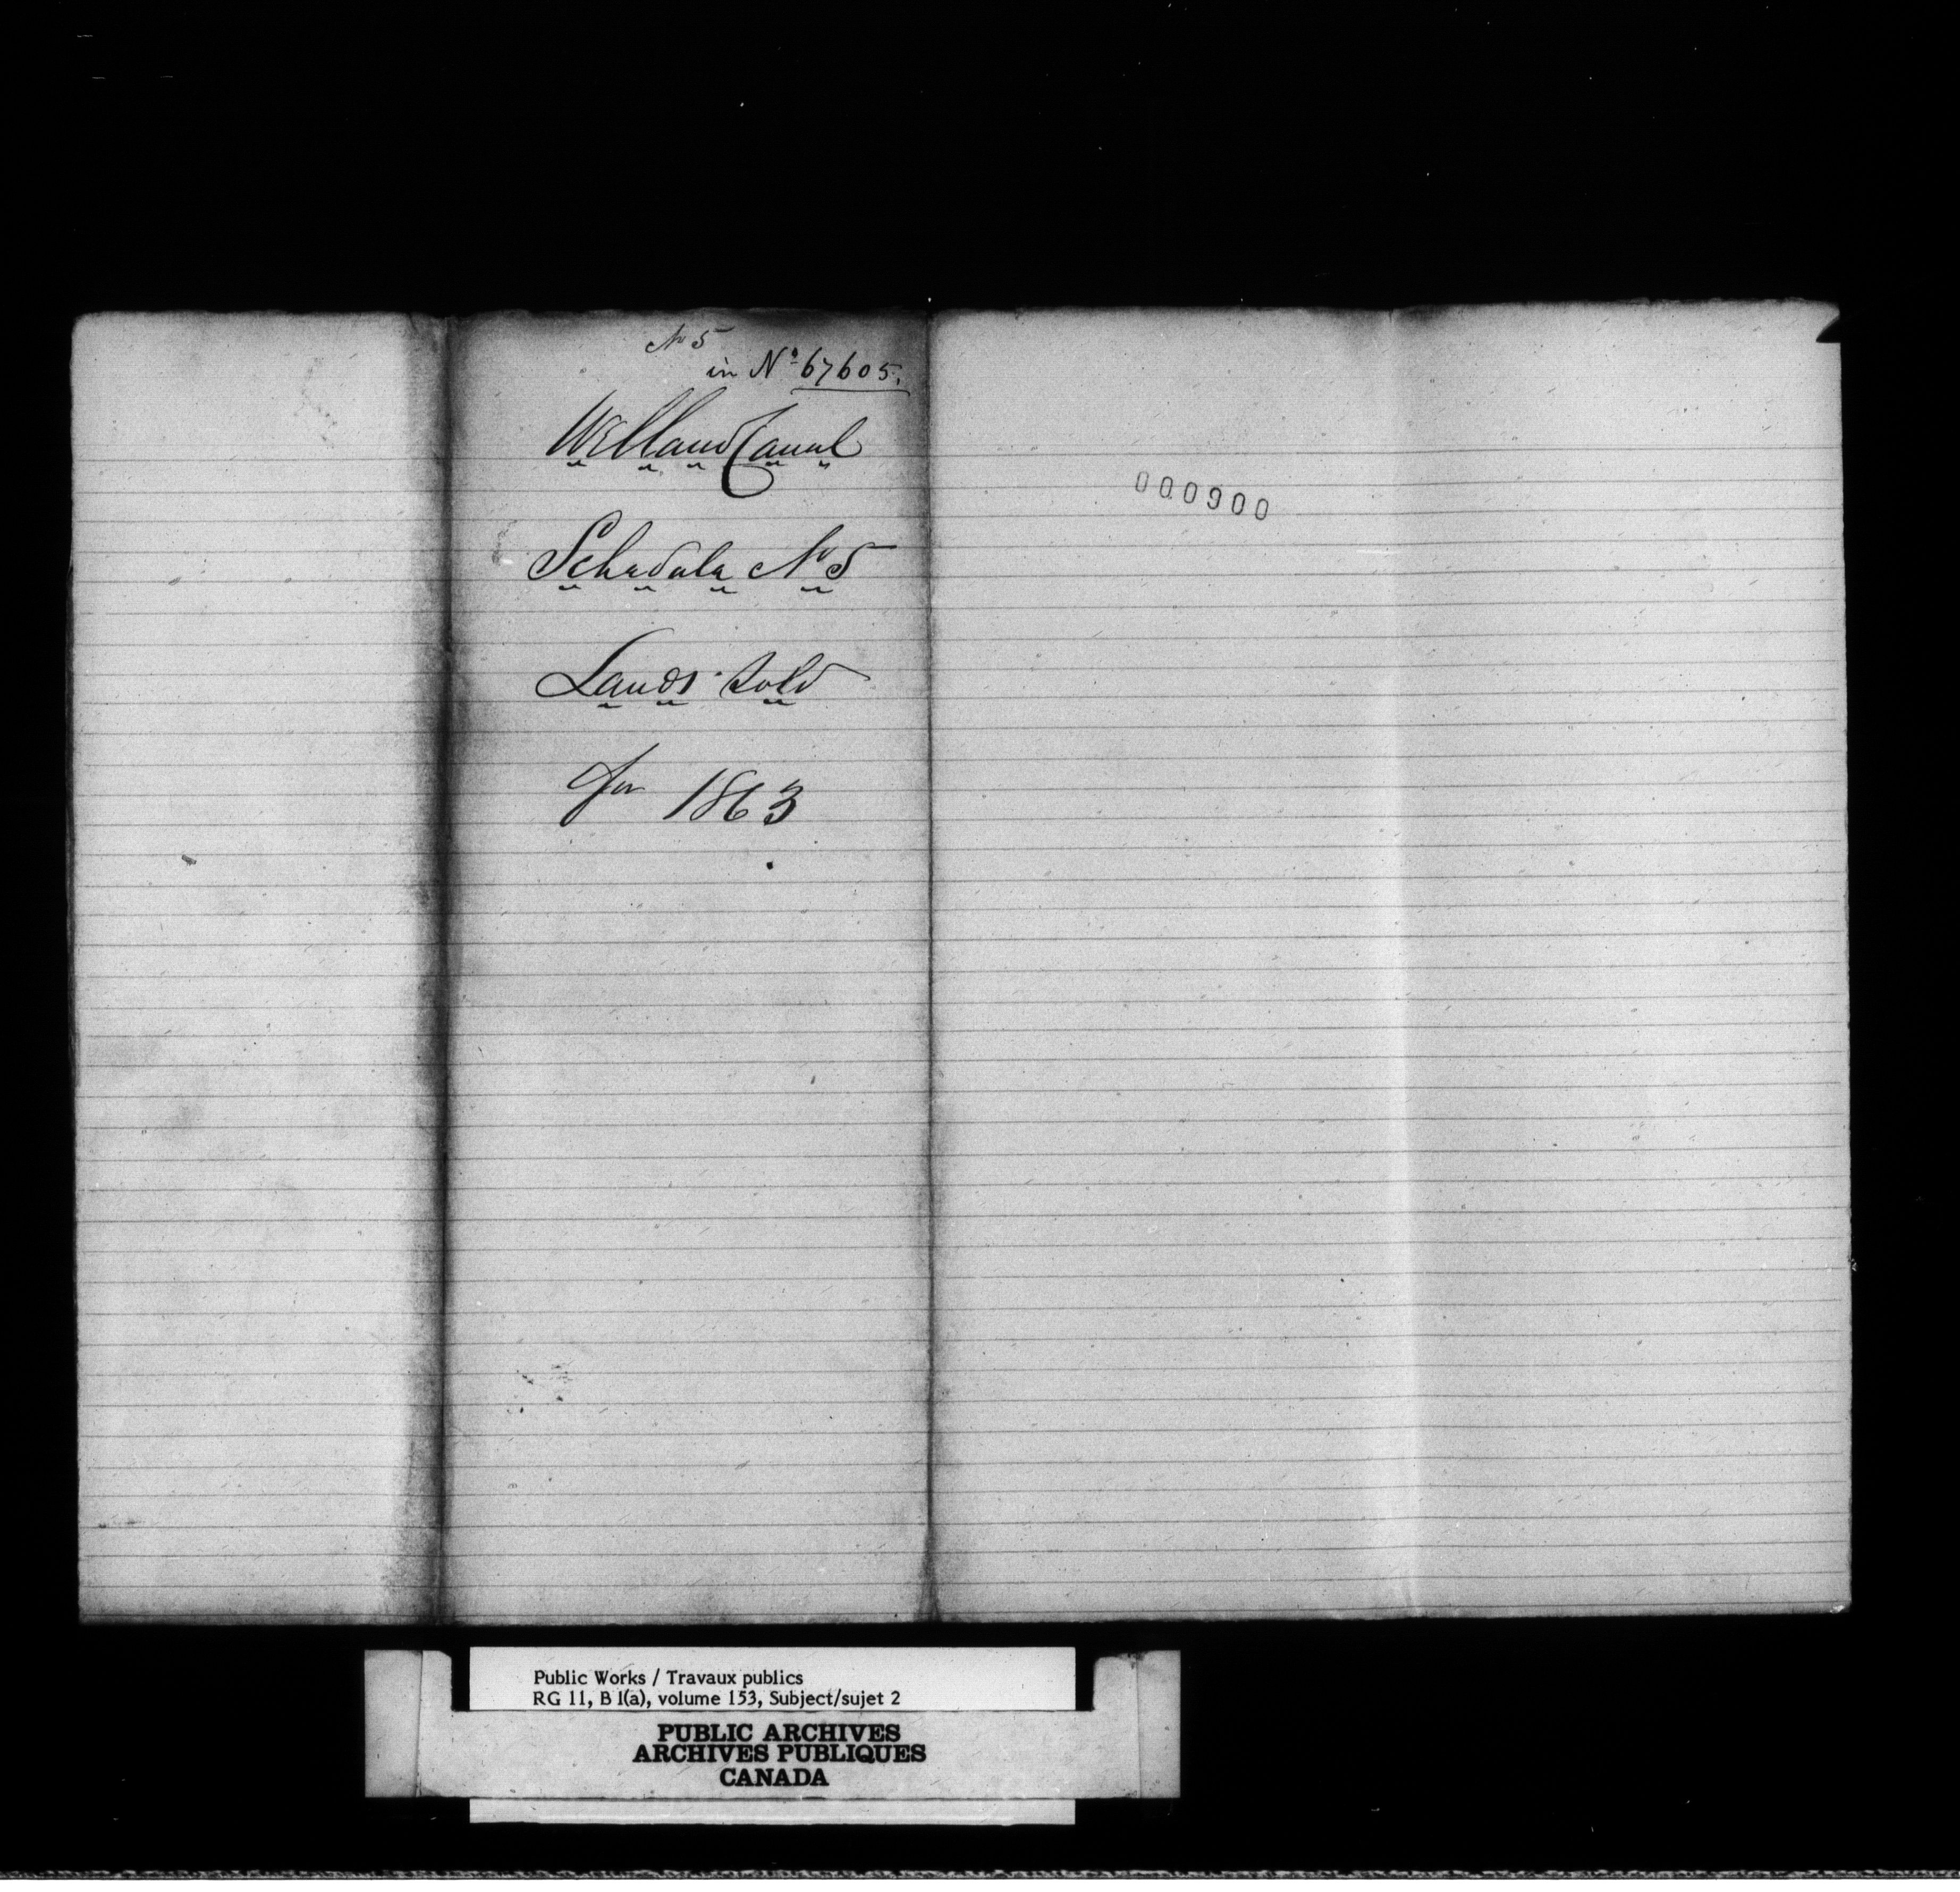 No 5
in No 67605.
Welland Canal
Schedule No 5
Lands Sold
for 1863
000900
Public Works / Travaux publics
RG 11, B 1(a), volume 153, Subject/sujet 2
PUBLIC ARCHIVES
ARCHIVES PUBLIQUES
CANADA